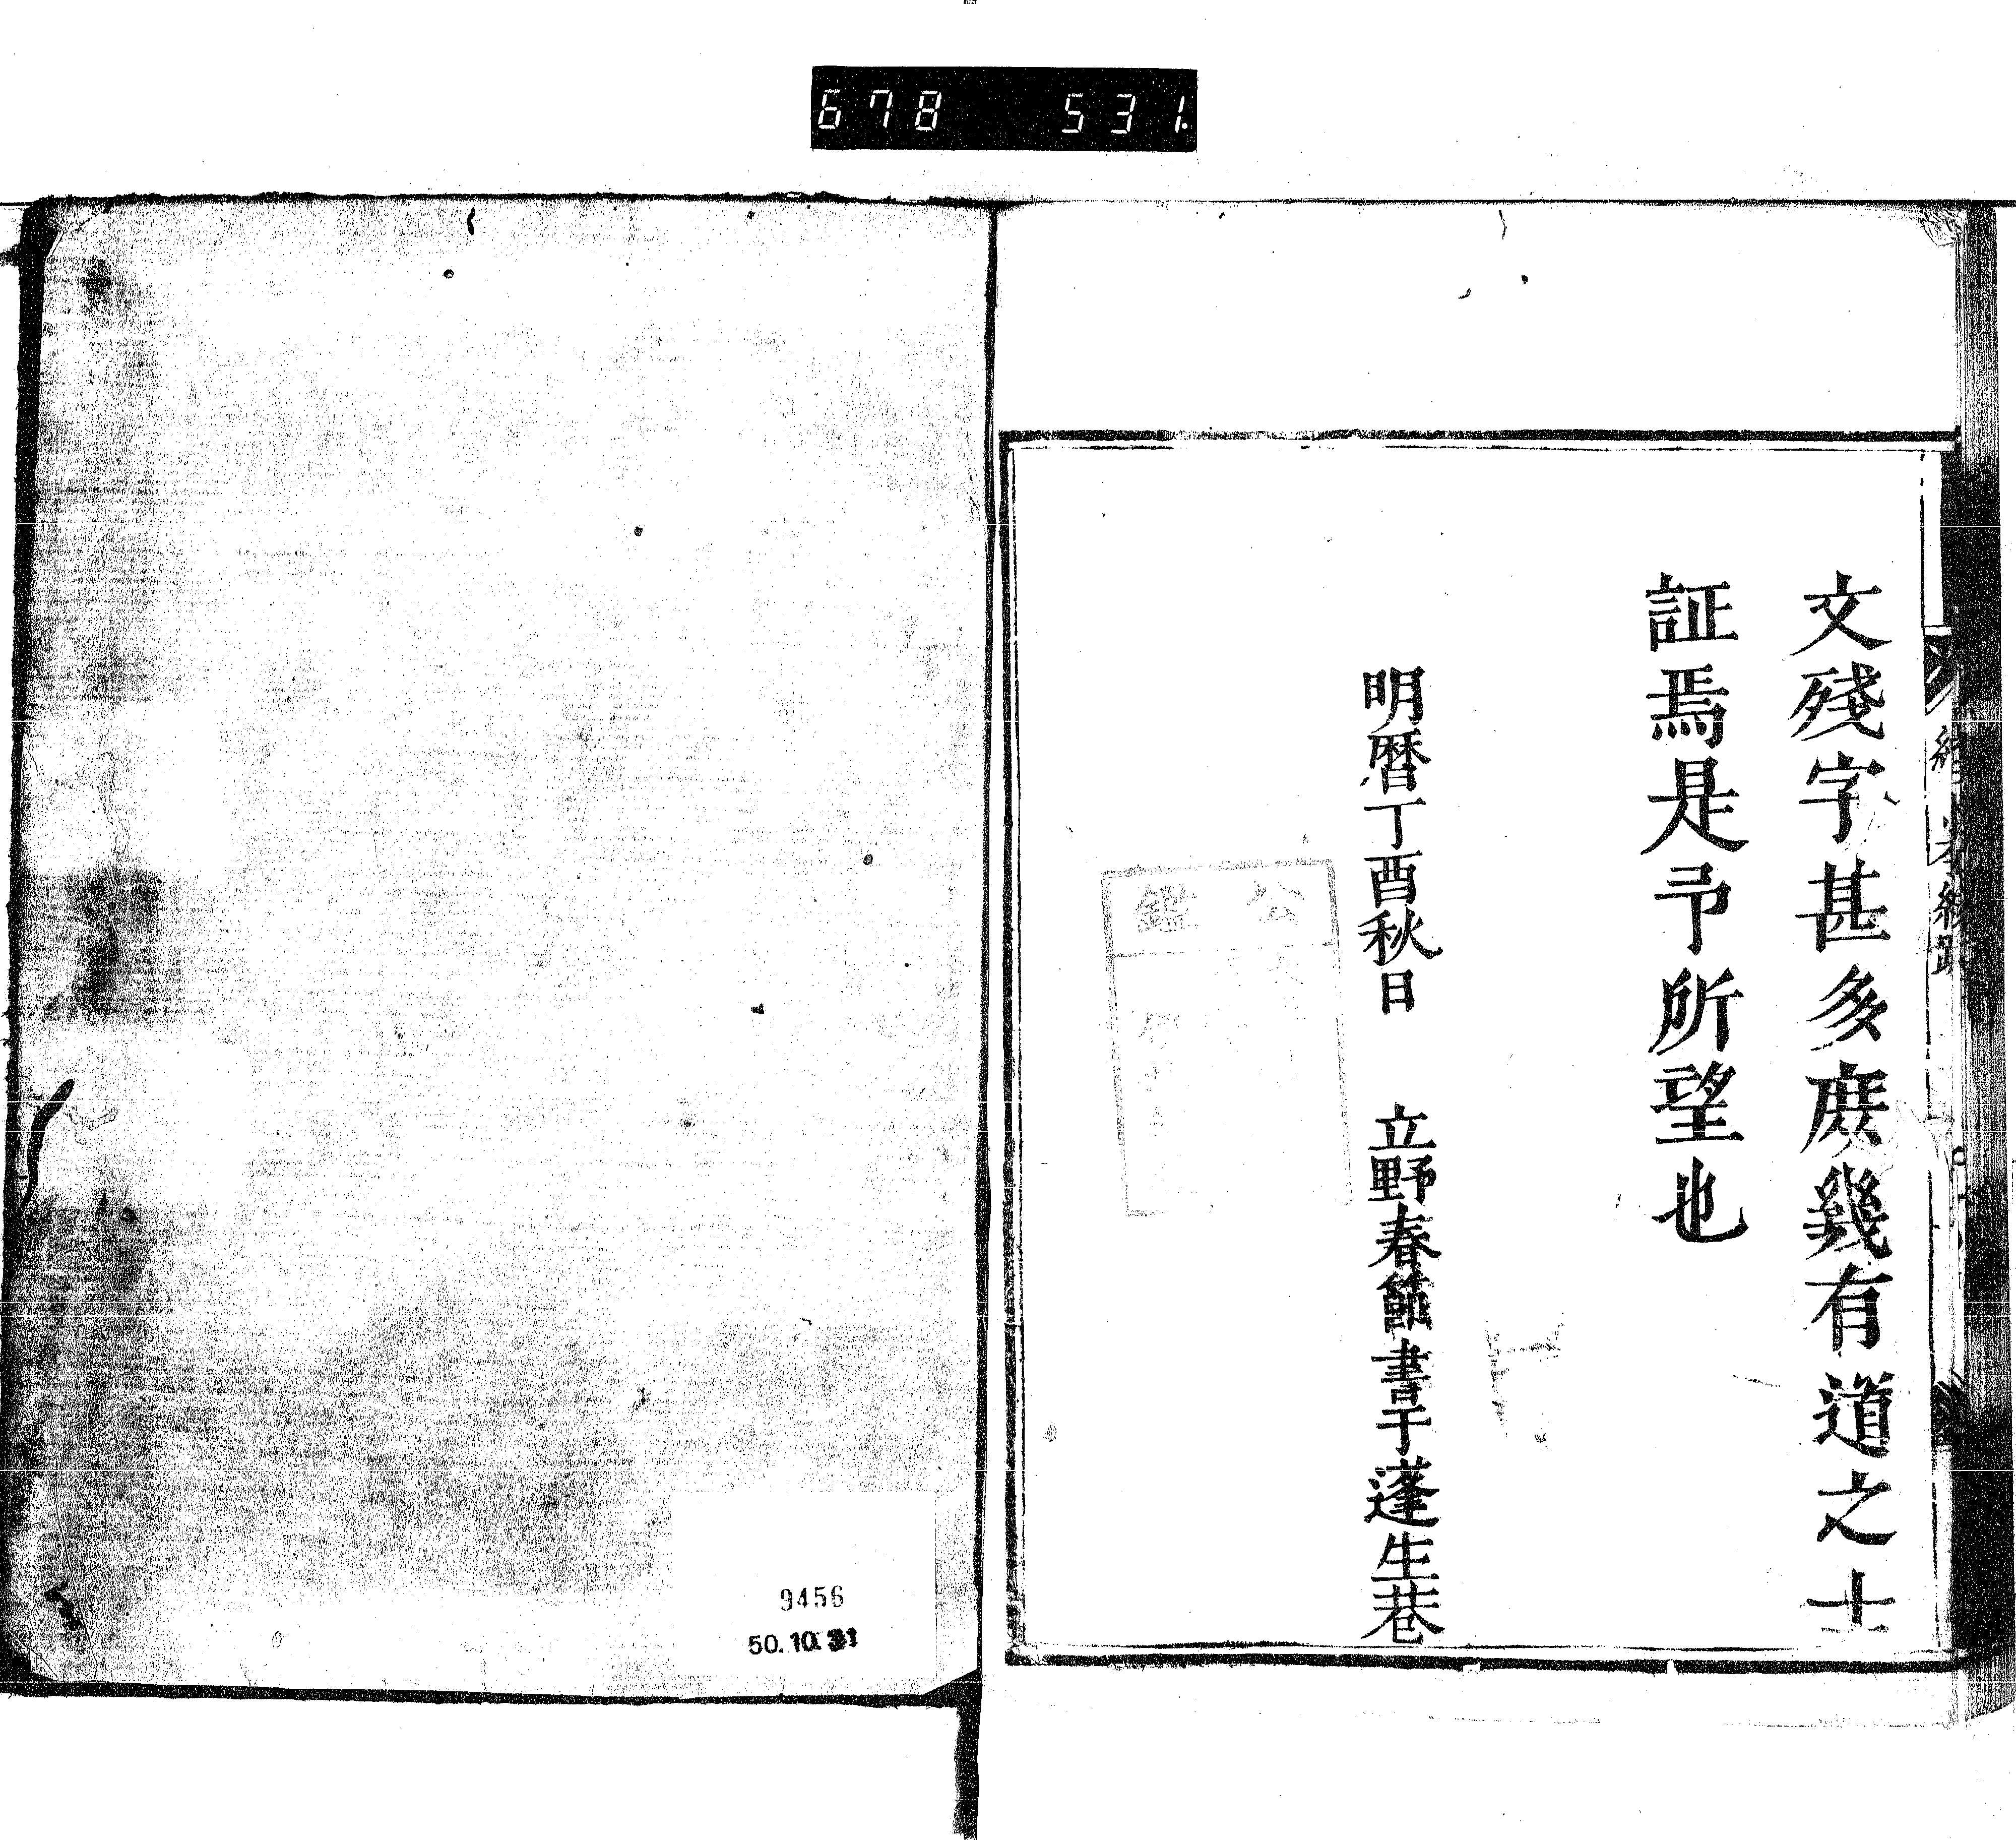 678 531.
文殘字甚多庻幾有道之士
証焉是予所望也
明暦丁酉秋日 立野春節書于蓬生巷
公
鑑
9456
50.10.31